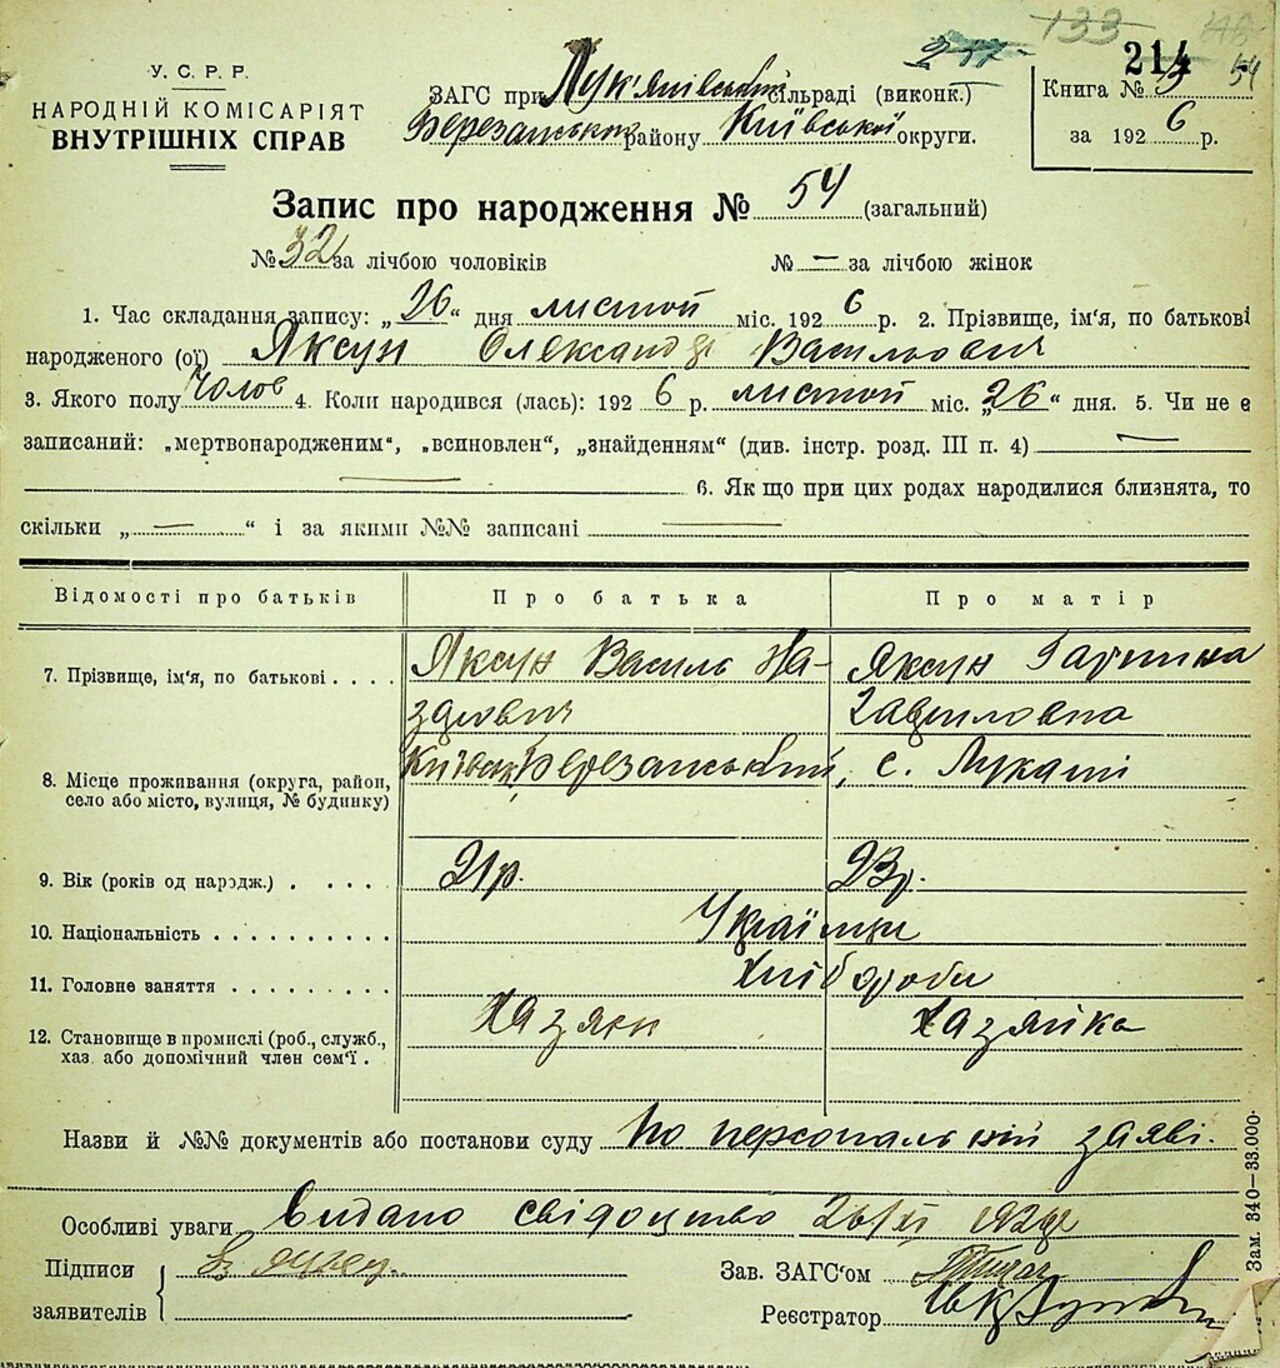 133
214
54
У. С. Р. Р.
НАРОДНІЙ КОМІСАРІЯТ
ВНУТРІШНІХ СПРАВ
ЗАГС при Лук'янівській сільраді (виконк.)
Березанського району Київської округи.
Книга № 3
за 1926 р.
Запис про народження № 54 (загальний)
№ 32 за лічбою чоловіків № — за лічбою жінок
1. Час складання запису: „26“ дня листоп міс. 1926 р. 2. Прізвище, ім‘я, по батькові
народженого (ої) Яксун Олександр Васильович
3. Якого полу Чолов 4. Коли народився (лась): 1926 р. листоп міс. „26“ дня. 5. Чи не є
записаний: „мертвонародженим“, „всиновлен“, „знайденням“ (див. інстр. розд. III п. 4) —
— 6. Як що при цих родах народилися близнята, то
скільки „—“ і за якими №№ записані —
Відомості про батьків Про батька Про матір
7. Прізвище, ім‘я, по батькові . . . . Яксун Василь На- Яксун Гапинка
зарович Гавриловна
8. Місце проживання (округа, район, Київськ, Березанський, с. Лукаші
село або місто, вулиця, № будинку)
9. Вік (років од народж.) . . . . . 21р. 23р.
10. Національність . . . . . . . . . . Українци
11. Головне заняття . . . . . . . . . Хлібороби
12. Становище в промислі (роб., служб., Хазяїн Хазяйка
хаз. або допомічний член сем‘ї .
Назви й №№ документів або постанови суду По персональній заяві.
Особливі уваги Видано свідоцтво 26/XI
Підписи
заявителів
Зав. ЗАГС‘ом
Реєстратор
Зам. 340—33.000.